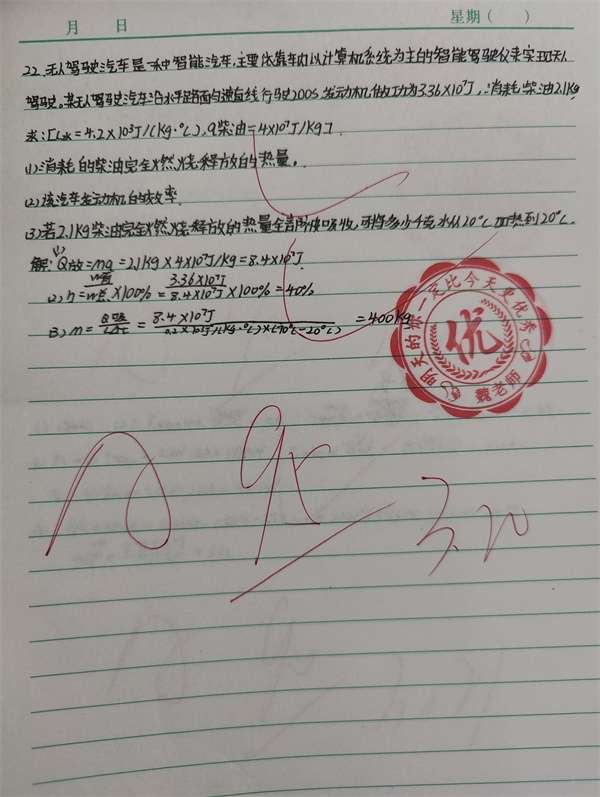 月 日 星期( )
22. 无人驾驶汽车是一种智能汽车,主要依靠车内以计算机系统为主的智能驾驶仪来实现无人
驾驶。某无人驾驶汽车沿水平路面匀速直线行驶200S,发动机做功为3.36×10⁷J,消耗柴油2.1Kg,
求:[C水=4.2×10³J/(Kg·℃),q柴油=4×10⁷J/Kg].
(1)消耗的柴油完全燃烧释放的热量。
(2)该汽车发动机的效率.
(3)若2.1Kg柴油完全燃烧释放的热量全部被水吸收,可将多少千克水从20℃加热到20℃.
解:(1)Q放=mq=2.1Kg×4×10⁷J/Kg=8.4×10⁷J.
(2)η=W有/W总×100%=3.36×10⁷J/8.4×10⁷J×100%=40%
(3)m=Q吸/CΔt=8.4×10⁷J/4.2×10³J/(Kg·℃)×(70℃-20℃)=400Kg
明天的你一定比今天更优秀
优
老师
95
3.20